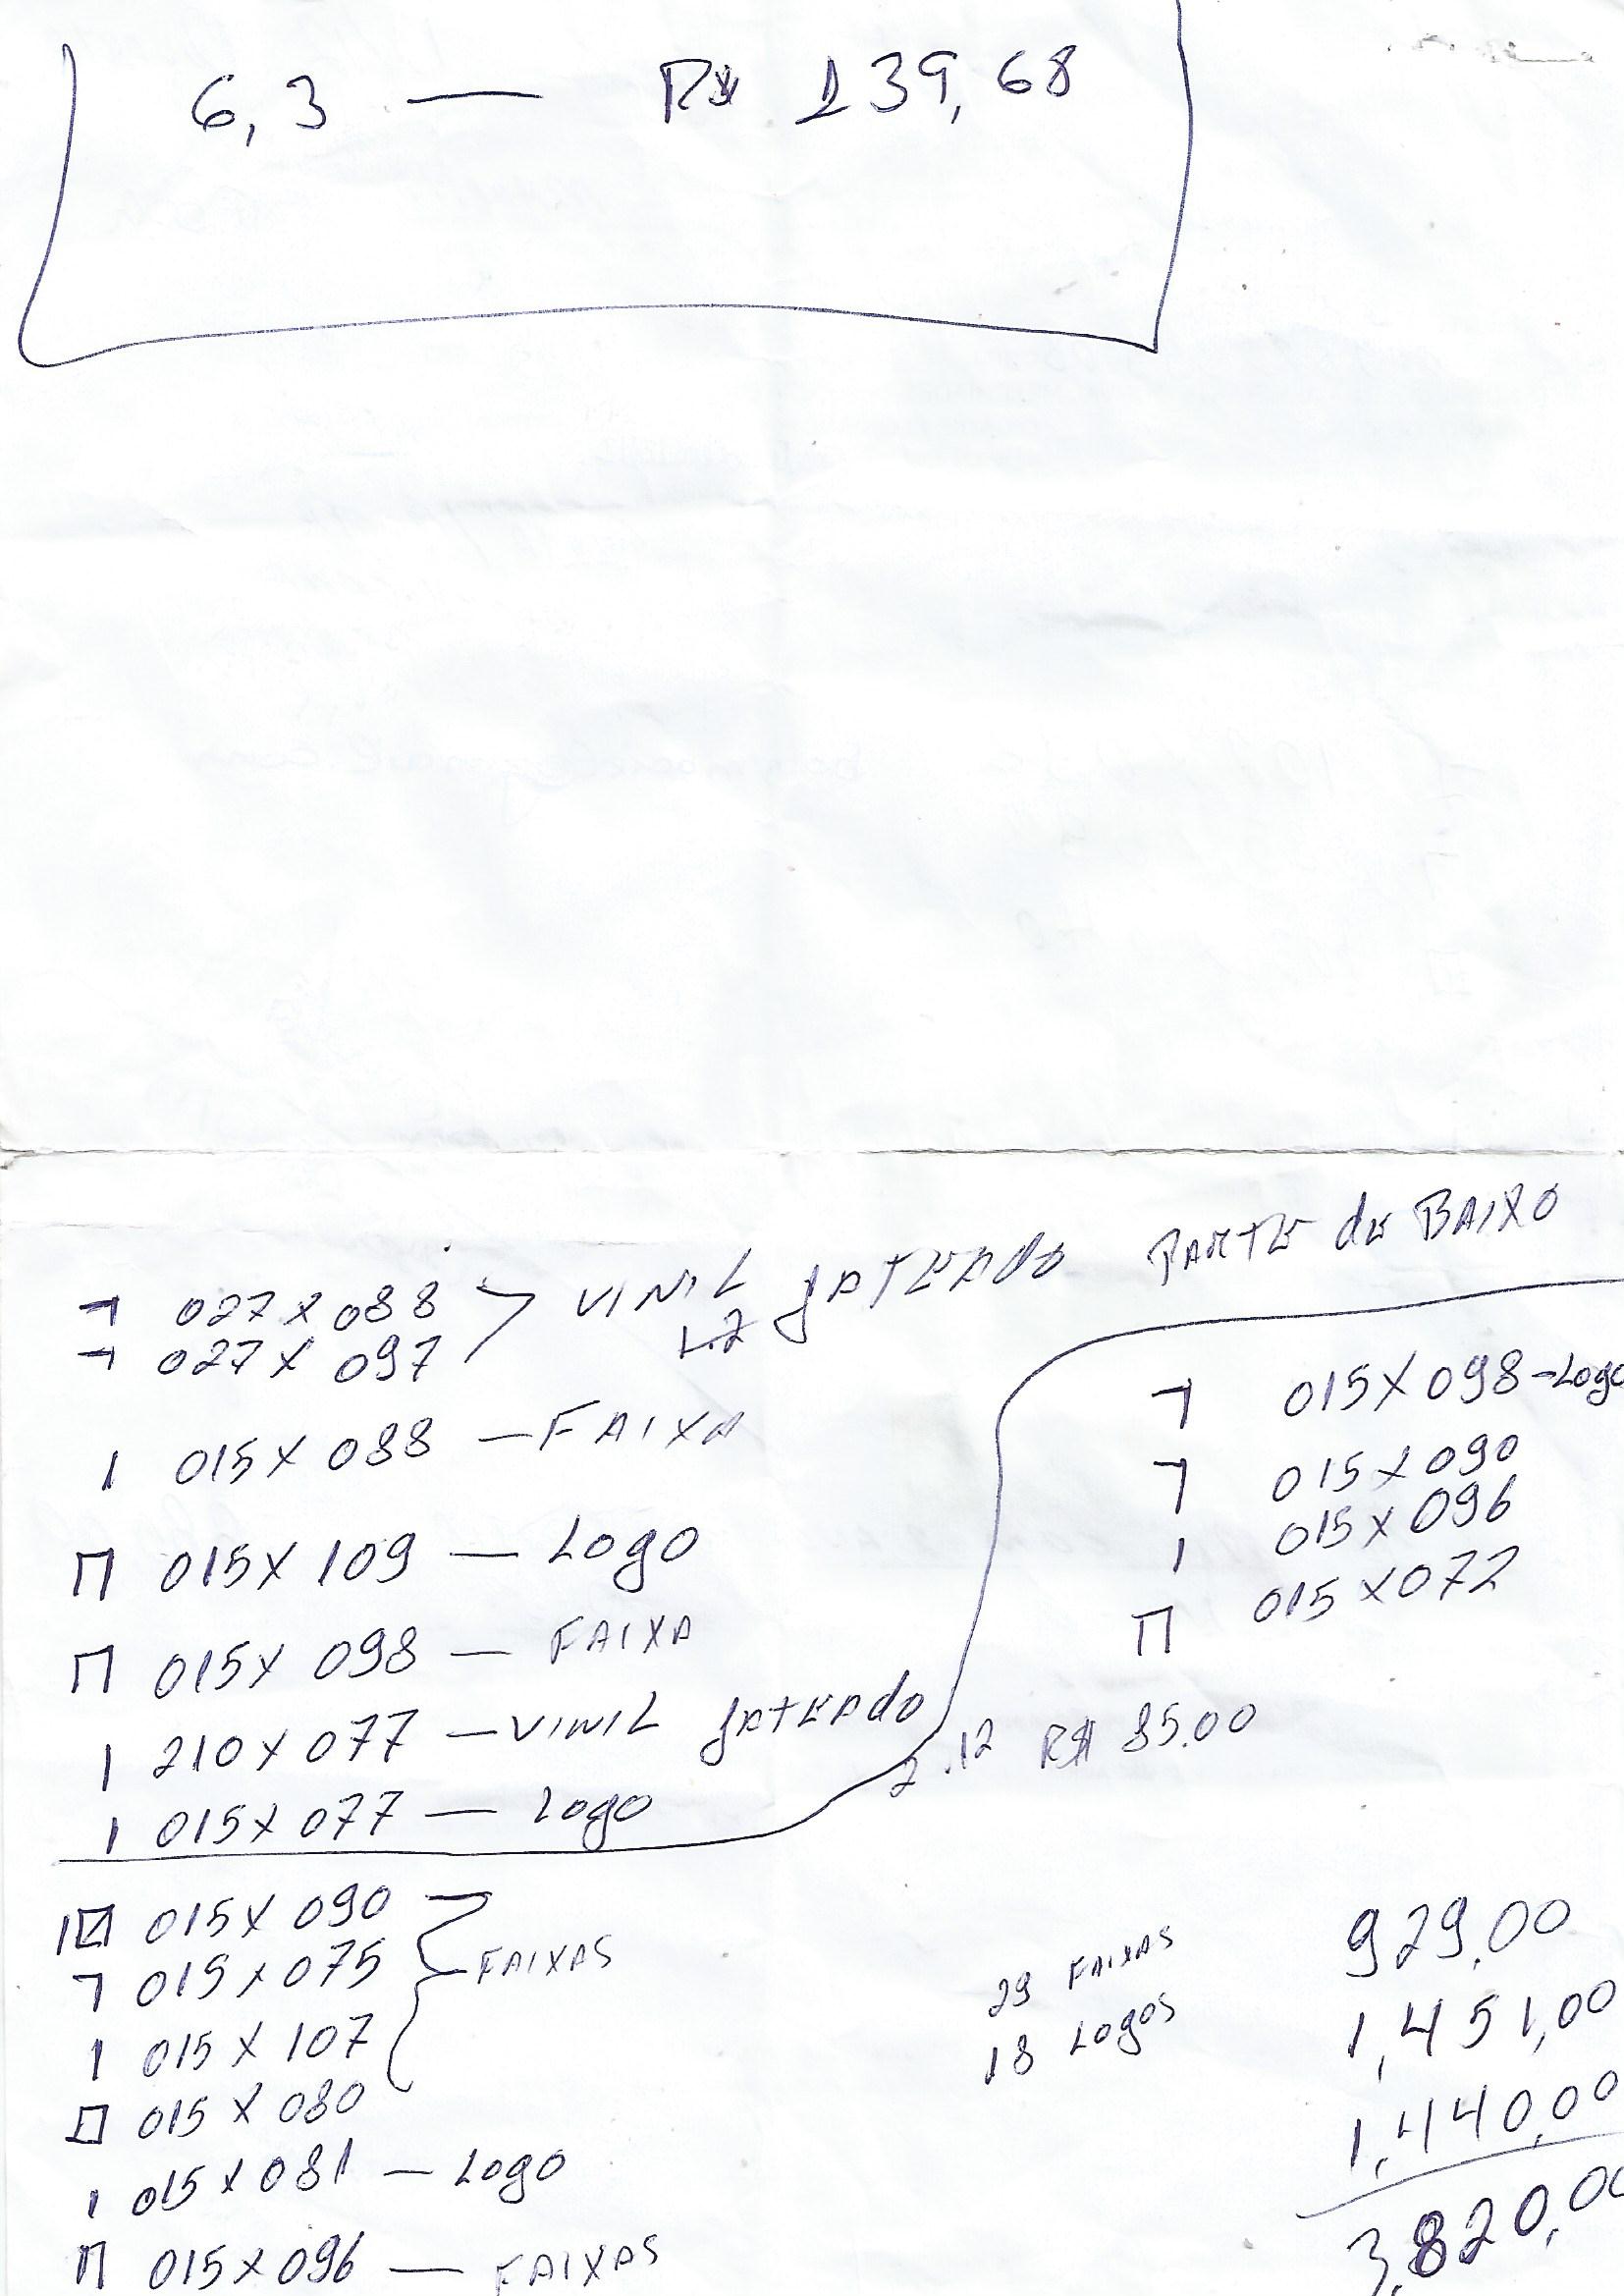 6,3 — R$ 239,68
PARTE de BAIXO
027 x 088
VINIL JATEADO
027 x 097
1.2
015 x 088 — FAIXA
015 x 109 — Logo
015 x 098 — FAIXA
210 x 077 — VINIL JATEADO
015 x 077 — Logo
015 x 098 - Logo
015 x 090
015 x 096
015 x 072
2.12 R$ 85.00
015 x 090
015 x 075
FAIXAS
015 x 107
015 x 080
015 x 081 — Logo
015 x 096 — FAIXAS
29 FAIXAS
18 Logos
929,00
1,451,00
1,440,00
3,820,00